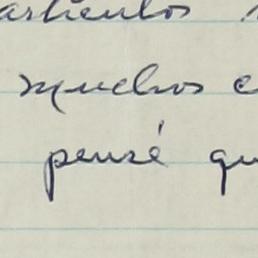 articulos
muchos
pensé qu